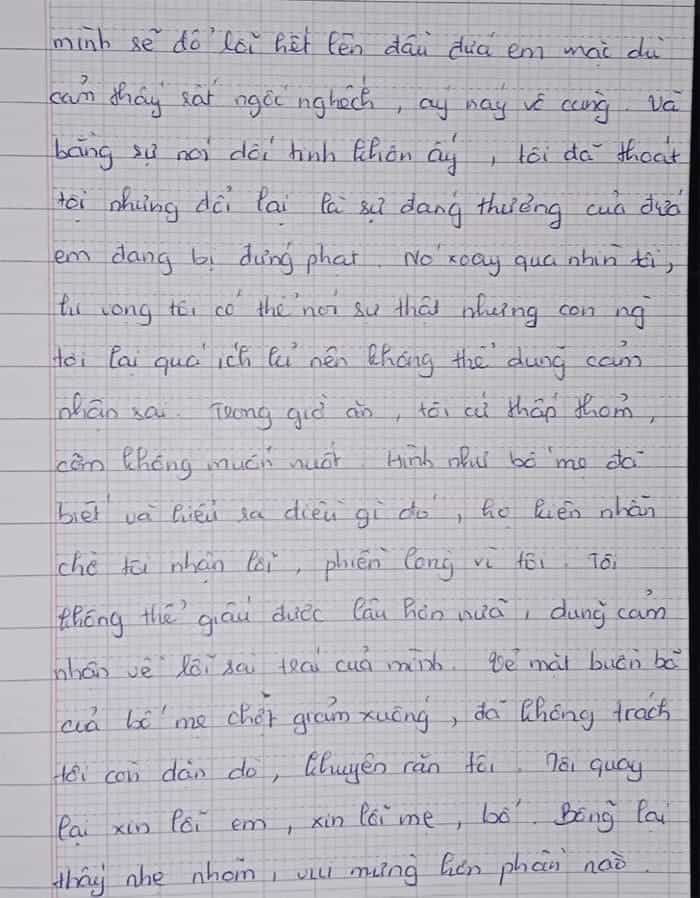 mình sẽ đổ lỗi hết lên đầu đứa em mặc dù
cảm thấy rất ngốc nghếch, áy náy vô cùng. Và
bằng sự nói dối tinh khôn ấy, tôi đã thoát
tội nhưng đổi lại là sự đáng thương của đứa
em đang bị đứng phạt. Nó xoay qua nhìn tôi,
hi vọng tôi có thể nói sự thật nhưng con ng
tôi lại quá ích kỉ nên không thể dũng cảm
nhận sai. Trong giờ ăn, tôi cứ thấp thỏm,
cơm không muốn nuốt. Hình như bố mẹ đã
biết và hiểu ra điều gì đó, họ kiên nhẫn
chờ tôi nhận lỗi, phiền lòng vì tôi. Tôi
không thể giấu được lâu hơn nữa, dũng cảm
nhận về lỗi sai trái của mình. Vẻ mặt buồn bã
của bố mẹ chợt giảm xuống, đã không trách
tôi còn dặn dò, khuyên răn tôi. Tôi quay
lại xin lỗi em, xin lỗi mẹ, bố. Bỗng lại
thấy nhẹ nhõm, vui mừng hơn phần nào.